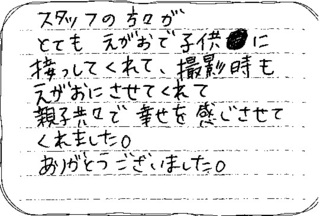 スタッフの方々が
とても えがおで子供に
接っしてくれて、撮影時も
えがおにさせてくれて
親子共々で 幸せを 感じさせて
くれました。
ありがとうございました。